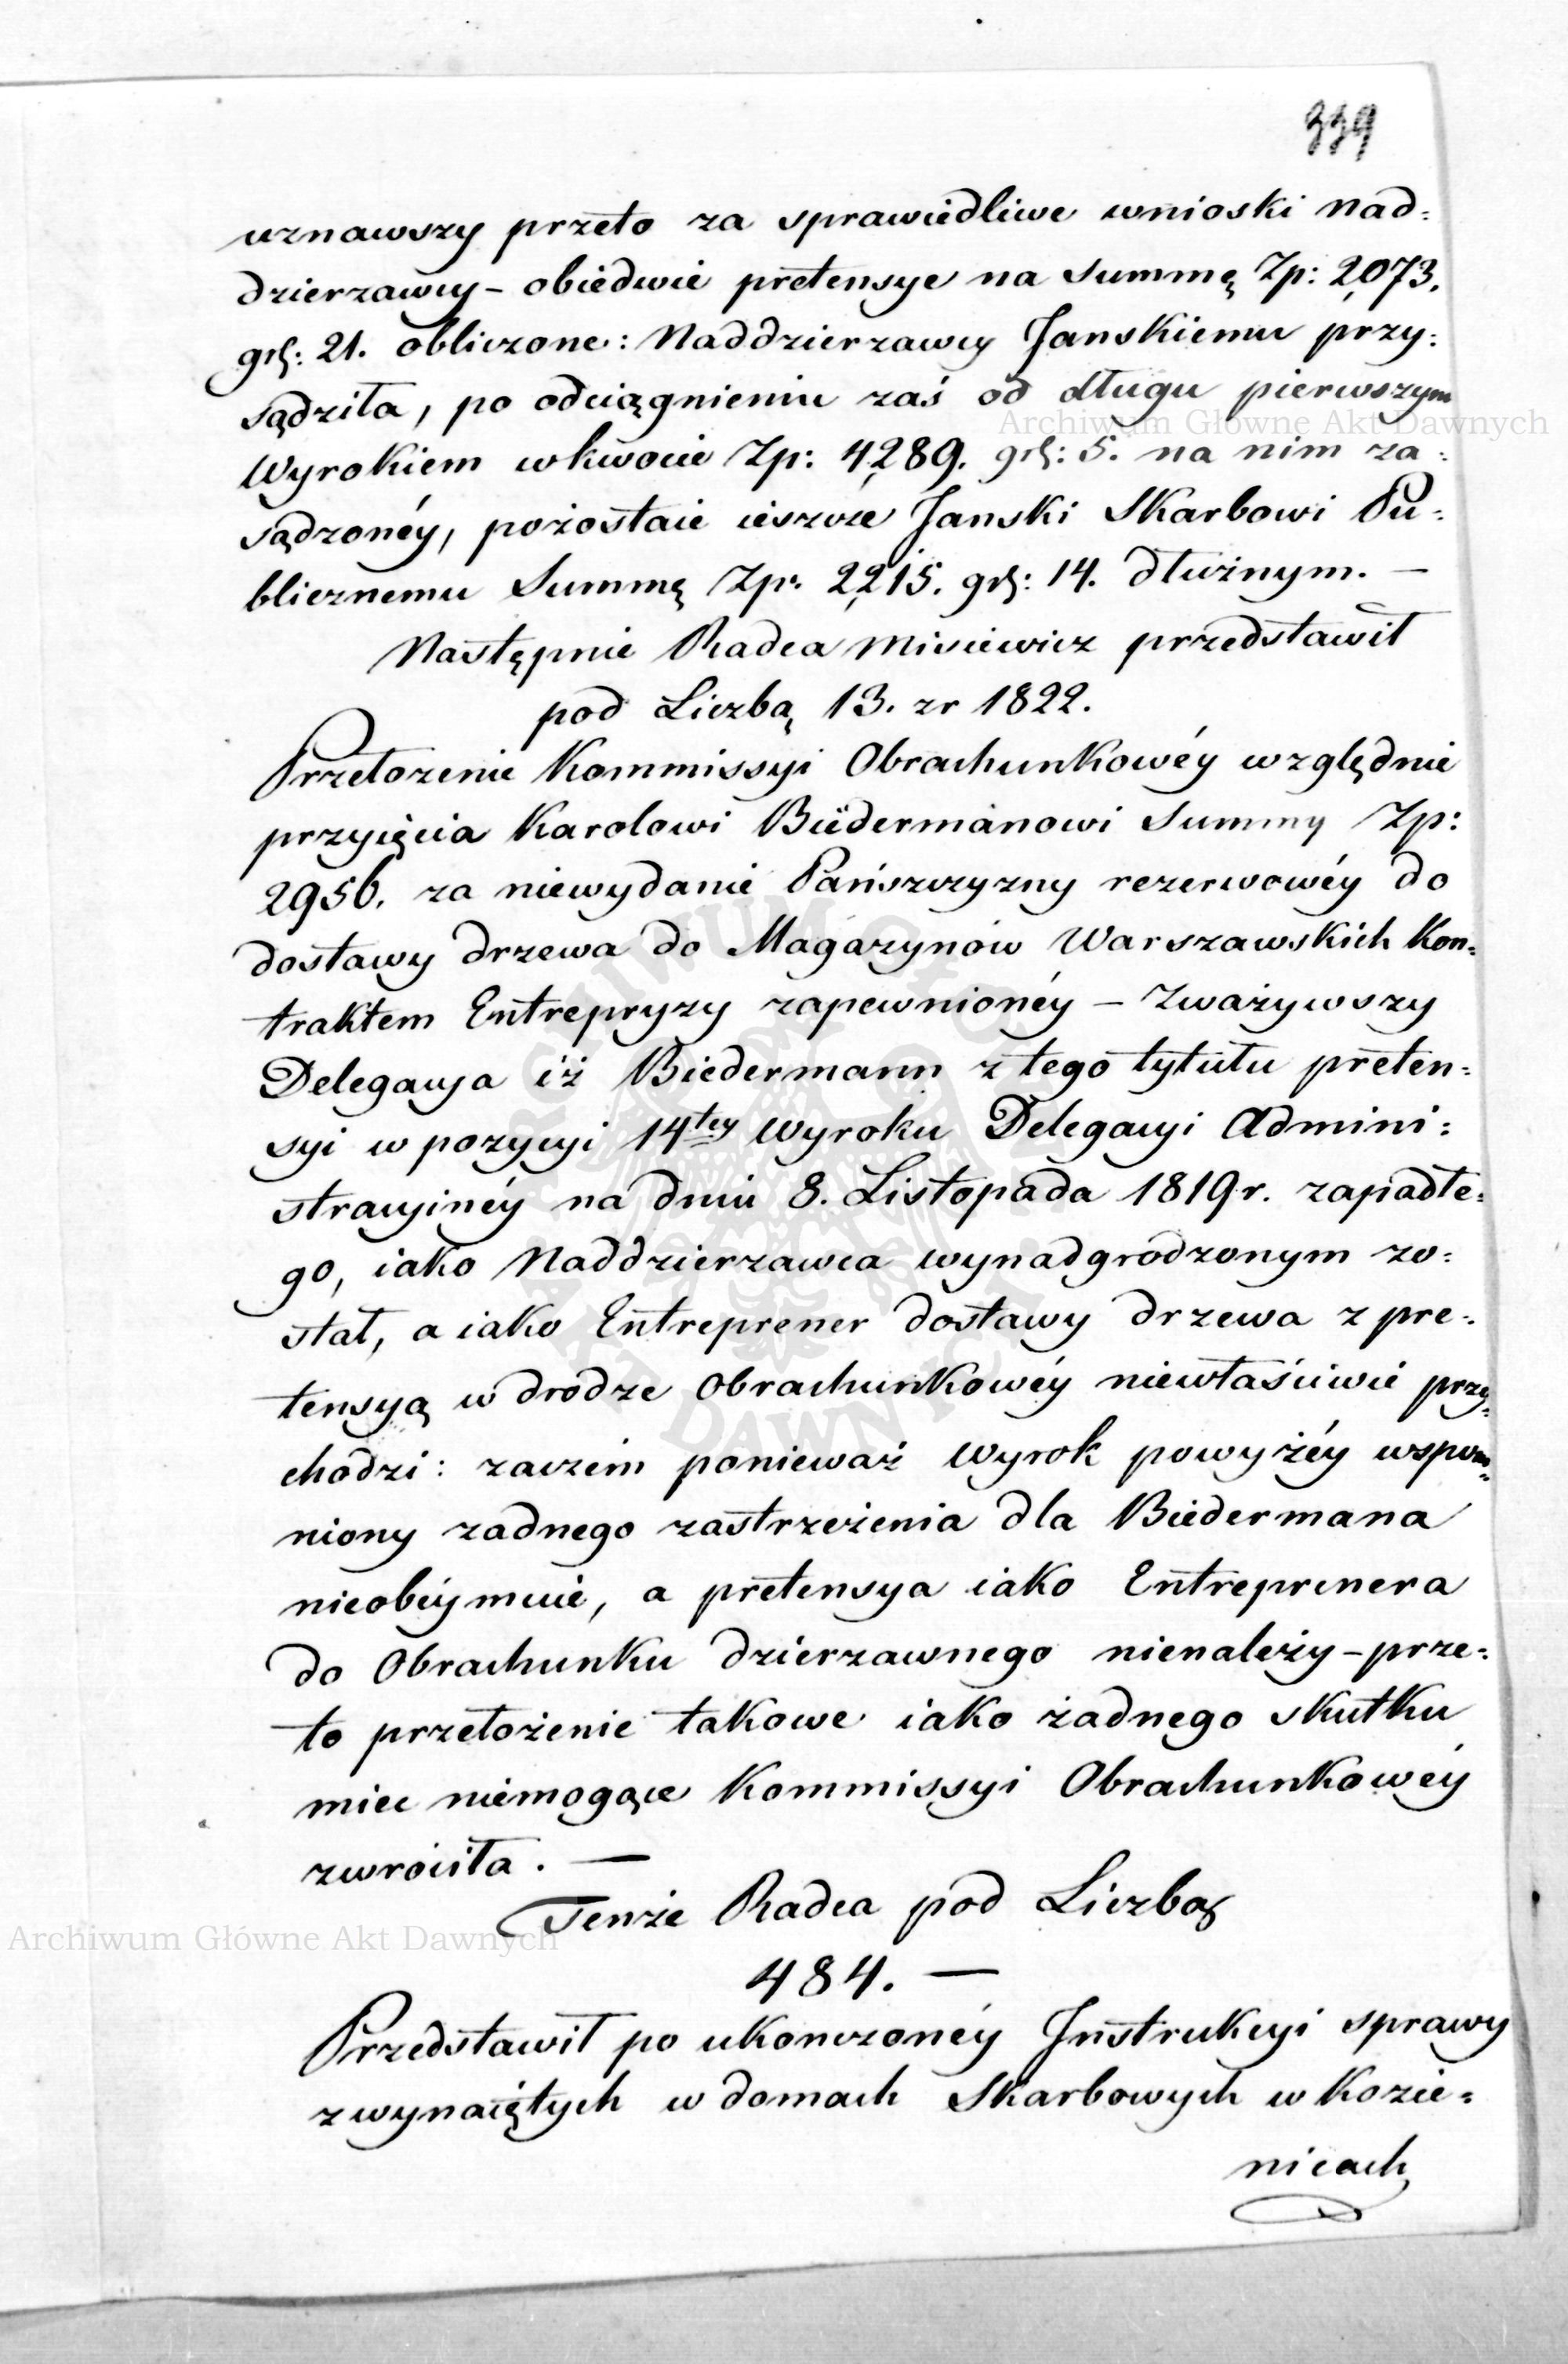 339
uznawszy przeto za sprawiedliwe wnioski Nad:
dzierzawcy – obiedwie pretensye na Summę Zp: 2,073.
gr: 21. obliczone: Naddzierzawcy Janskiemu przy:
sądziła, po odciągnieniu zaś od długu pierwszym
Wyrokiem w kwocie Zp: 4,289. gr: 5. na nim za:
sądzonéy, pozostaie ieszcze Janski Skarbowi Pu:
blicznemu Summę Zp. 2,215. gr: 14. dłużnym. —
Następnie Radca Misiewicz przedstawił
pod Liczbą 13. z r 1822.
Przełożenie Kommissyi Obrachunkowéy względnie
przyięcia Karolowi Biedermanowi Summy Zp:
2956. za niewydanie Pańszczyzny rezerwowéy do
dostawy drzewa do Magazynów Warszawskich Kon:
traktem Entrepryzy zapewnionéy – Zważywszy
Delegacya iż Biedermann z tego tytułu preten:
syi w pozycyi 14tey Wyroku Delegacyi Admini:
stracyinéy na dniu 8. Listopada 1819 r. zapadłe:
go, iako Naddzierzawca wynadgrodzonym zo:
stał, a iako Entreprener dostawy drzewa z pre:
tensyą w drodze Obrachunkowéy niewłaściwie przy:
chodzi: zaczém ponieważ Wyrok powyżéy wspom:
niony zadnego zastrzeżenia dla Biedermana
nieobéymuie, a pretensya iako Entreprenera
do Obrachunku dzierzawnego nienależy – prze:
to przełożenie takowe iako żadnego skutku
miec niemogące Kommissyi Obrachunkowéy
zwróciła. —
Tenże Radca pod Liczbą
484. —
Przedstawił po ukonczonéy Instrukcyi sprawy
z wynaiętych w domach Skarbowych w Kozie:
nicach
Archiwum Główne Akt Dawnych
Archiwum Główne Akt Dawnych